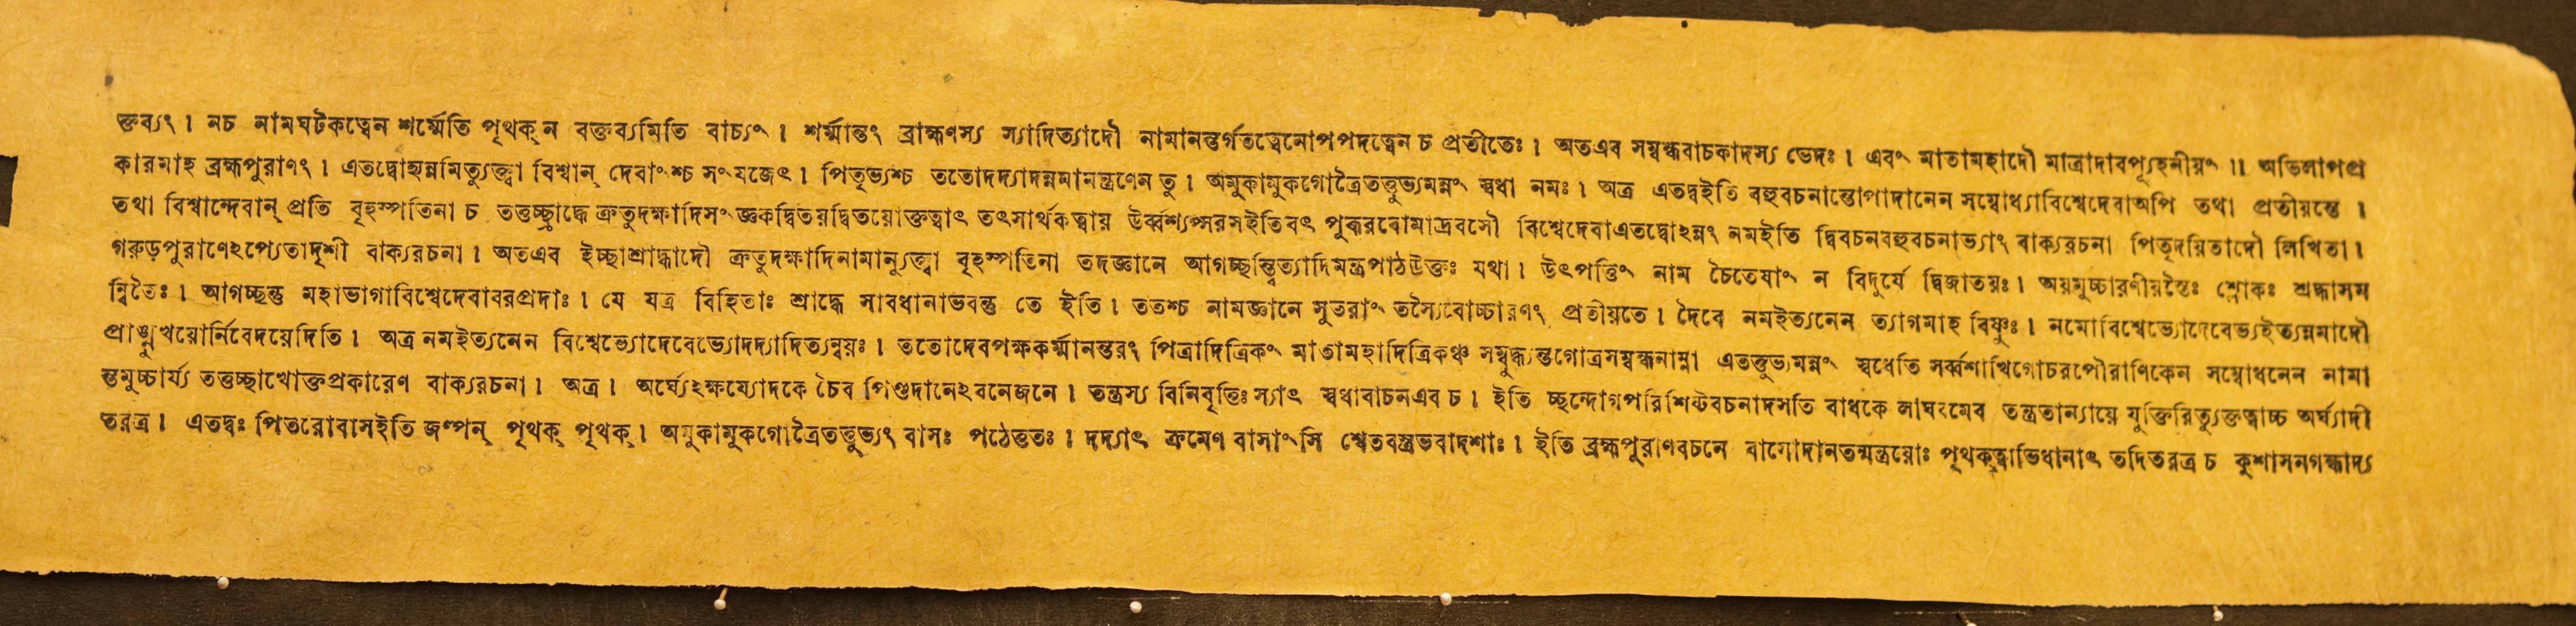 ক্তব্যং । নচ নামঘটকত্বেন শর্ম্মেতি পৃথক্ ন বক্তব্যমিতি বাচ্যং । শর্ম্মান্তং ব্রাহ্মণস্য স্যাদিত্যাদৌ নামানন্তর্গতত্বেনোপপদত্বেন চ প্রতীতেঃ । অতএব সম্বন্ধবাচকাদস্য ভেদঃ । এবং মাতামহাদৌ মাত্রাদাবপ্যূহনীয়ং ॥ অভিলাপপ্র
কারমাহ ব্রহ্মপুরাণং । এতদ্বোহ্যন্নমিত্যুক্ত্বা বিশ্বান্ দেবাংশ্চ সংযজেৎ । পিতৃভ্যশ্চ ততোদদ্যাদন্নমানন্ত্রণেন তু । অমুকামুকগোত্রৈতত্তুভ্যমন্নং স্বধা নমঃ । অত্র এতদ্বইতি বহুবচনান্তোপাদানেন সম্বোধ্যাবিশ্বেদেবাঅপি তথা প্রতীয়ন্তে ।
তথা বিশ্বান্দেবান্ প্রতি বৃহস্পতিনা চ তত্তচ্ছ্রাদ্ধে ক্রতুদক্ষাদিসংজ্ঞকদ্বিতয়দ্বিতয়োক্তত্বাৎ তৎসার্থকত্বায় উর্ব্বশ্যপ্সরসইতিবৎ পুরূরবোমাদ্রবসৌ বিশ্বেদেবাএতদ্বোঽন্নং নমইতি দ্বিবচনবহুবচনাভ্যাং বাক্যরচনা পিতৃদয়িতাদৌ লিখিতা ।
গরুড়পুরাণেঽপ্যেতাদৃশী বাক্যরচনা । অতএব ইচ্ছাশ্রাদ্ধাদৌ ক্রতুদক্ষাদিনামান্যুক্ত্বা বৃহস্পতিনা তদজ্ঞানে আগচ্ছন্ত্বিত্যাদিমন্ত্রপাঠউক্তঃ যথা । উৎপত্তিং নাম চৈতেষাং ন বিদুর্যে দ্বিজাতয়ঃ । অয়মুচ্চারণীয়স্তৈঃ শ্লোকঃ শ্রদ্ধাসম
ন্বিতৈঃ । আগচ্ছন্তু মহাভাগাবিশ্বেদেবাবরপ্রদাঃ । যে যত্র বিহিতাঃ শ্রাদ্ধে সাবধানাভবন্তু তে ইতি । ততশ্চ নামজ্ঞানে সুতরাং তস্যৈবোচ্চারণং প্রতীয়তে । দৈবে নমইত্যনেন ত্যাগমাহ বিষ্ণুঃ । নমোবিশ্বেভ্যোদেবেভ্যইত্যন্নমাদৌ
প্রাঙ্মুখয়োর্নিবেদয়েদিতি । অত্র নমইত্যনেন বিশ্বেভ্যোদেবেভ্যোদদ্যাদিত্যন্বয়ঃ । ততোদেবপক্ষকর্ম্মানন্তরং পিত্রাদিত্রিকং মাতামহাদিত্রিকঞ্চ সম্বুদ্ধ্যন্তগোত্রসম্বন্ধনাম্না এতত্তুভ্যমন্নং স্বধেতি সর্ব্বশাখিগোচরপৌরাণিকেন সম্বোধনেন নামা
ন্তমুচ্চার্য্য তত্তচ্ছাখোক্তপ্রকারেণ বাক্যরচনা । অত্র । অর্ঘ্যেঽক্ষয্যোদকে চৈব পিণ্ডদানেঽবনেজনে । তন্ত্রস্য বিনিবৃত্তিঃ স্যাৎ স্বধাবাচনএব চ । ইতি চ্ছন্দোগপরিশিষ্টবচনাদসতি বাধকে লাঘবমেব তন্ত্রতান্যায়ে যুক্তিরিত্যুক্তত্বাচ্চ অর্ঘ্যাদী
তরত্র । এতদ্বঃ পিতরোবাসইতি জল্পন্ পৃথক্ পৃথক্ । অমুকামুকগোত্রৈতত্তুভ্যং বাসঃ পঠেত্ততঃ । দদ্যাৎ ক্রমেণ বাসাংসি শ্বেতবস্ত্রভবাদশাঃ । ইতি ব্রহ্মপুরাণবচনে বাসোদানতন্মন্ত্রয়োঃ পৃথক্ত্বাভিধানাৎ তদিতরত্র চ কুশাসনগন্ধাদ্য